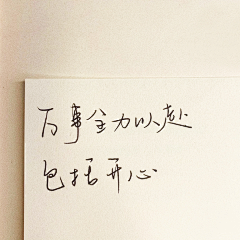 万事全力以赴
包括开心